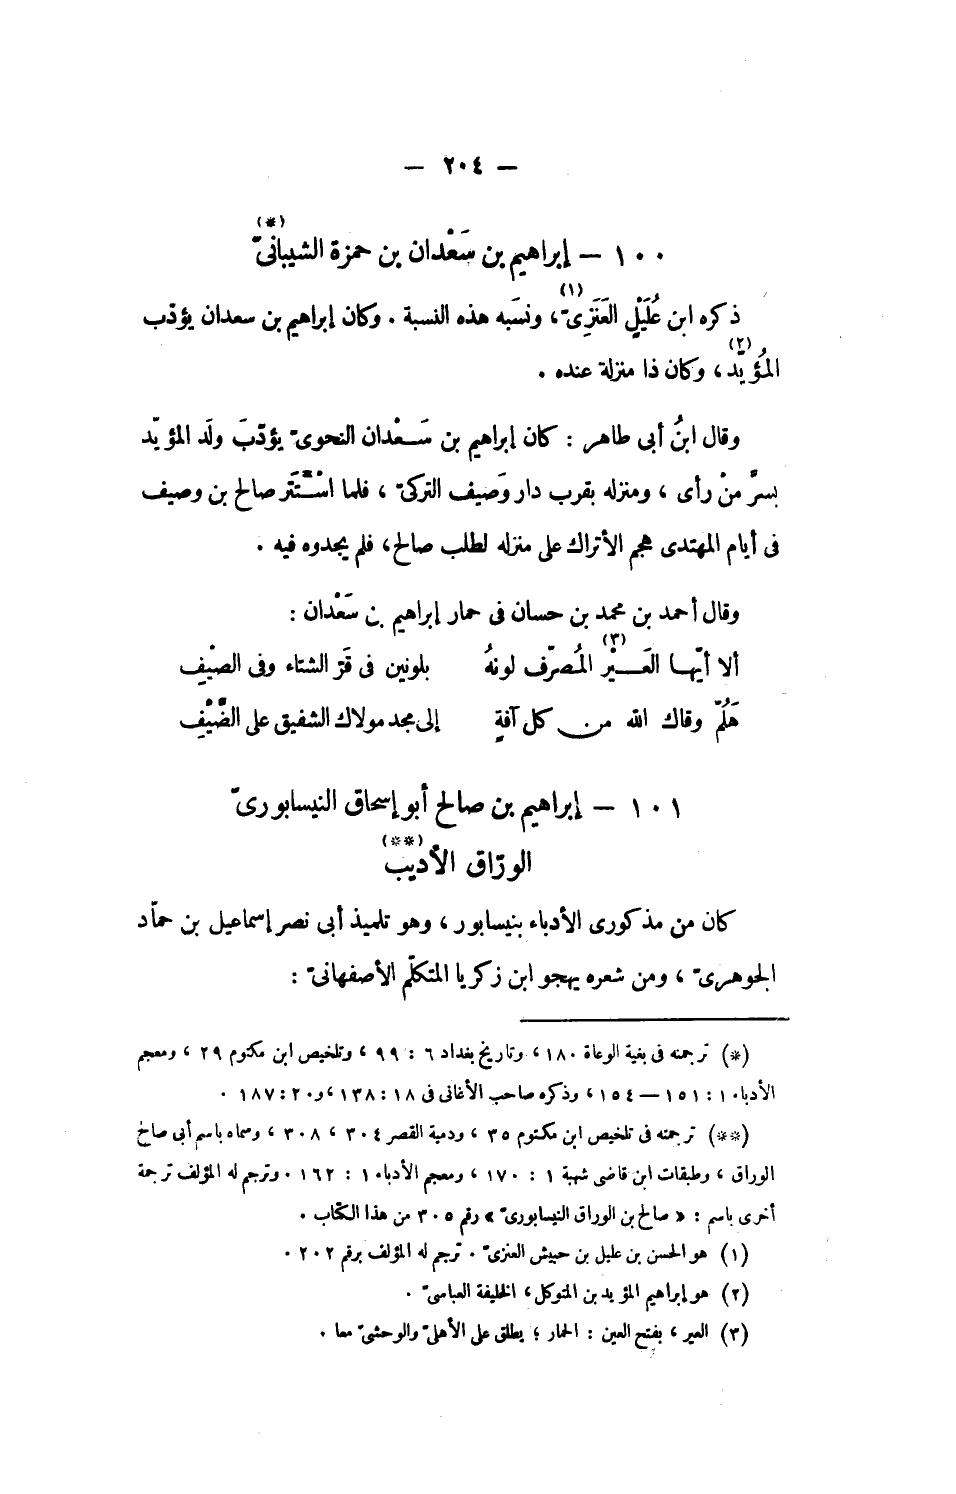 — ٢٠٤ —
١٠٠ — إبراهيم بن سَعْدان بن حمزة الشيبانىّ (*)
ذكره ابن عُلَيْلٍ العَنَزِىّ (١)، ونسَبه هذه النسبة . وكان إبراهيم بن سعدان يؤدّب
المُؤيَّد (٢)، وكان ذا منزلة عنده .
وقال ابنُ أبى طاهر : كان إبراهيم بن سَعْدان النحوىّ يؤدّبَ ولَد المؤيّد
بسرَّ منْ رأى ، ومنزله بقرب دار وَصيف التركىّ ، فلما اسْتَتَر صالح بن وصيف
فى أيام المهتدى هجم الأتراك على منزله لطلب صالح، فلم يجدوه فيه .
وقال أحمد بن محمد بن حسان فى حمار إبراهيم بن سَعْدان :
ألا أيّها العَيْر (٣) المُصرّف لونهُ بلونين فى قَرّ الشتاء وفى الصيْفِ
هَلُمّ وقاك الله من كل آفةٍ إلى مجد مولاك الشفيق على الضَّيْفِ
١٠١ — إبراهيم بن صالح أبو إسحاق النيسابورىّ
الورّاق الأديب (**)
كان من مذكورى الأدباء بنيسابور ، وهو تلميذ أبى نصر إسماعيل بن حمّاد
الجوهرىّ ، ومن شعره يهجو ابن زكريا المتكلّم الأصفهانىّ :
(*) ترجمته فى بغية الوعاة ١٨٠ ، وتاريخ بغداد ٦ : ٩٩ ، وتلخيص ابن مكتوم ٢٩ ، ومعجم
الأدباء ١ : ١٥١ — ١٥٤ ، وذكره صاحب الأغانى فى ١٨ : ١٣٨ ، و٢٠ : ١٨٧ .
(**) ترجمته فى تلخيص ابن مكتوم ٣٥ ، ودمية القصر ٣٠٤ ، ٣٠٨ ، وسماه باسم أبى صالح
الوراق ، وطبقات ابن قاضى شهبة ١ : ١٧٠ ، ومعجم الأدباء ١ : ١٦٢ . وترجم له المؤلف ترجمة
أخرى باسم : « صالح بن الوراق النيسابورىّ » رقم ٣٠٥ من هذا الكتاب .
(١) هو الحسن بن عليل بن حبيش العنزىّ . ترجم له المؤلف برقم ٢٠٢ .
(٢) هو إبراهيم المؤيد بن المتوكل ، الخليفة العباسىّ .
(٣) العير ، بفتح العين : الحمار ؛ يطلق على الأهلىّ والوحشىّ معا .